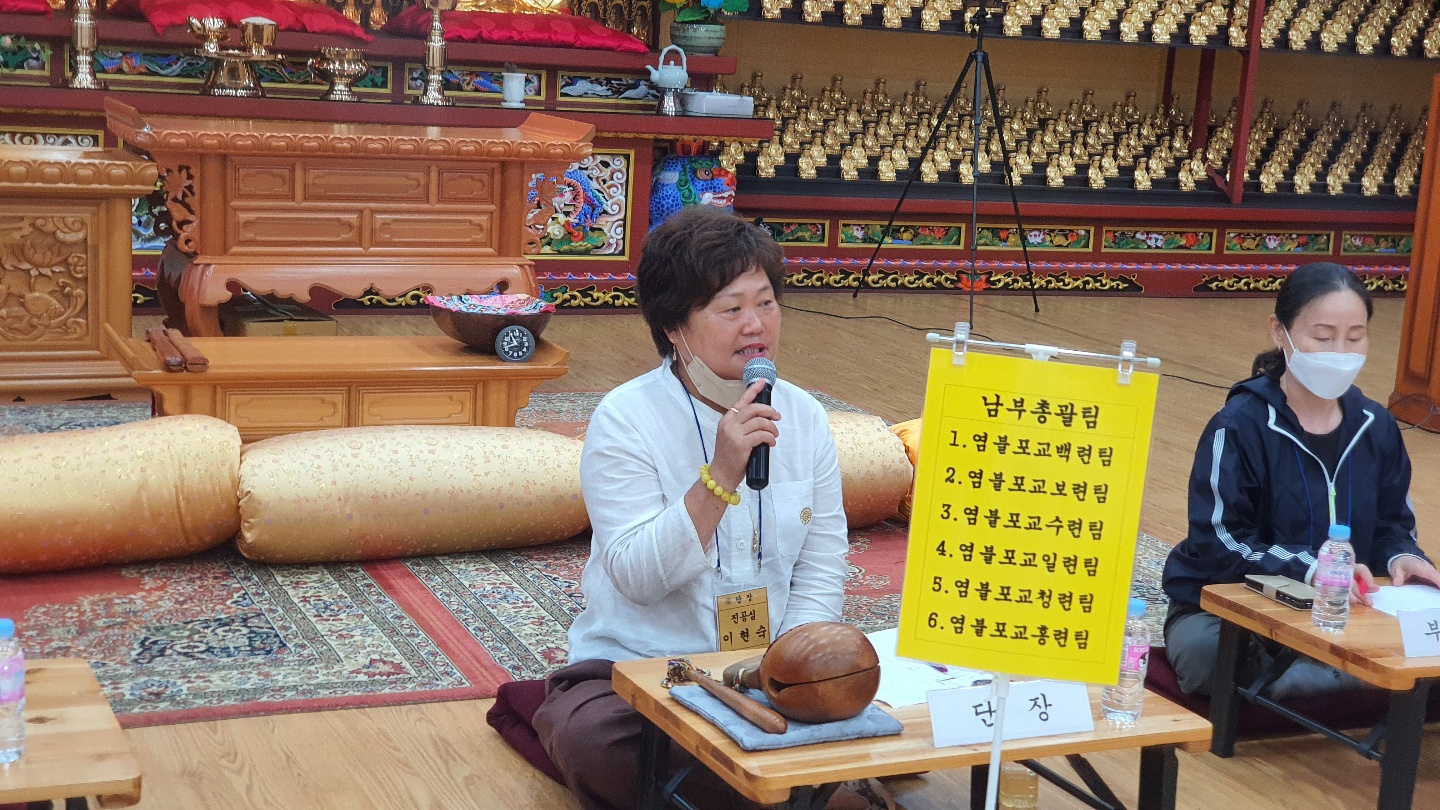 남부총괄팀
1.염불포교백련팀
2.염불포교보련팀
3.염불포교수련팀
4.염불포교일련팀
5.염불포교청련팀
6.염불포교홍련팀
단장
진공심
이현숙
단 장
부